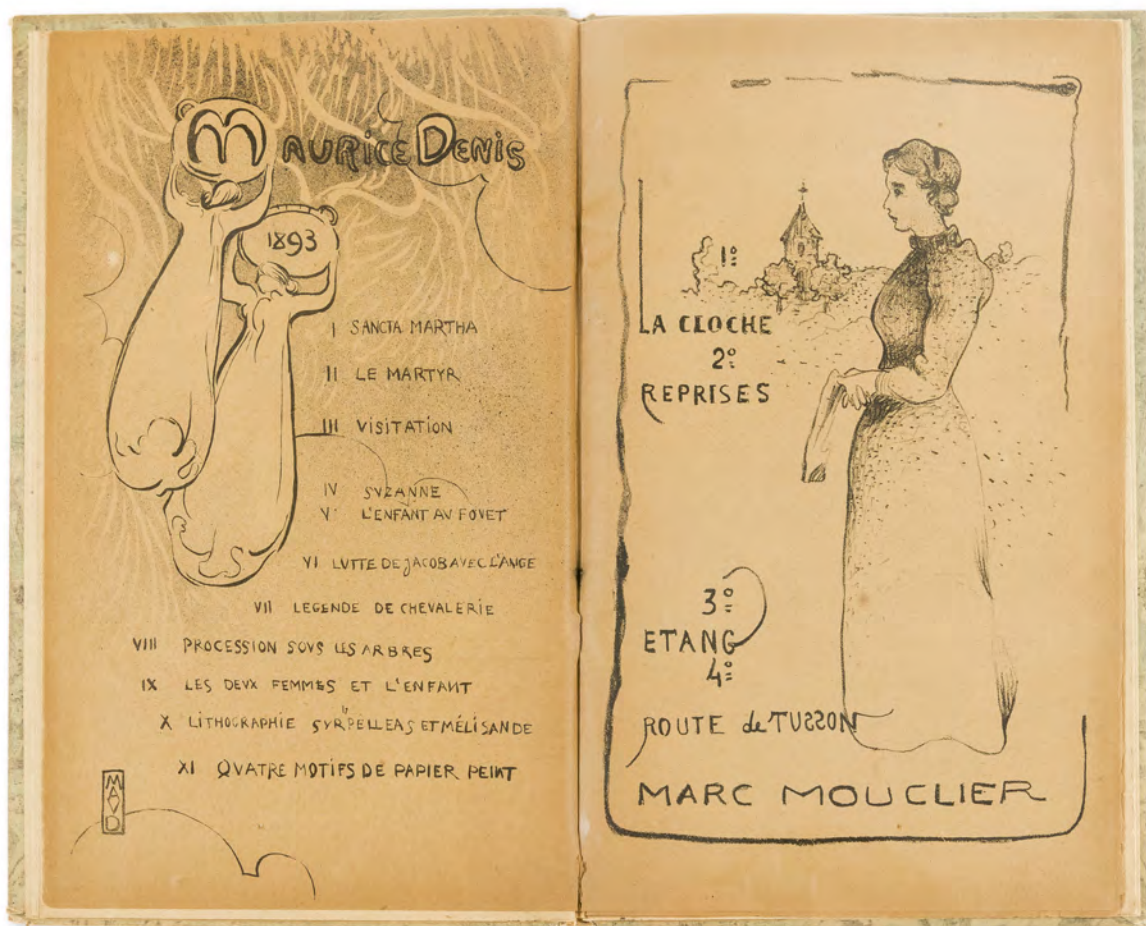 MAURICE DENIS
1893
I SANCTA MARTHA
II LE MARTYR
III VISITATION
IV SVZANNE
V L'ENFANT AV FOVET
VI LVTTE DE JACOB AVEC L'ANGE
VII LEGENDE DE CHEVALERIE
VIII PROCESSION SOVS LES ARBRES
IX LES DEVX FEMMES ET L'ENFANT
X LITHOGRAPHIE SVR PELLEAS ET MÉLISANDE
XI QVATRE MOTIFS DE PAPIER PEINT
MAVD
1º
LA CLOCHE
2º
REPRISES
3º
ETANG
4º
ROUTE de TUSSON
MARC MOUCLIER